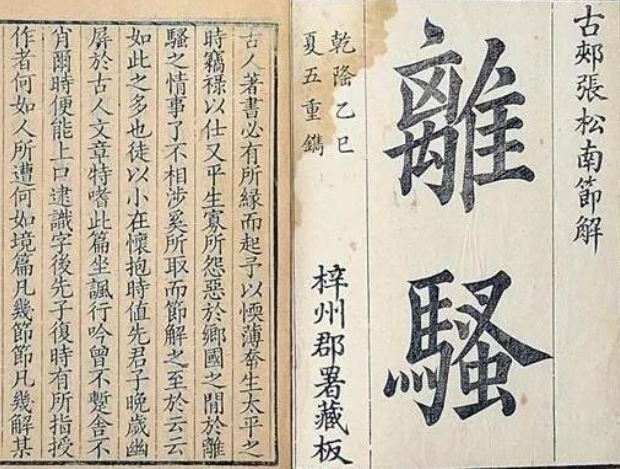 古郊張松南節解
離騷
乾隆乙巳
夏五重鐫
梓州郡署藏板
古人著書必有所緣而起予以愞薄幸生太平之
時竊禄以仕又平生寡所怨惡於鄉國之閒於離
騷之情事了不相涉奚所取而節解之至於云云
如此之多也徒以小在懷抱時值先君子晚歲幽
屏於古人文章特嗜此篇坐諷行吟曾不蹔舍不
肖爾時便能上口逮識字後先子復時有所指授
作者何如人所遭何如境篇凡幾節節凡幾解某